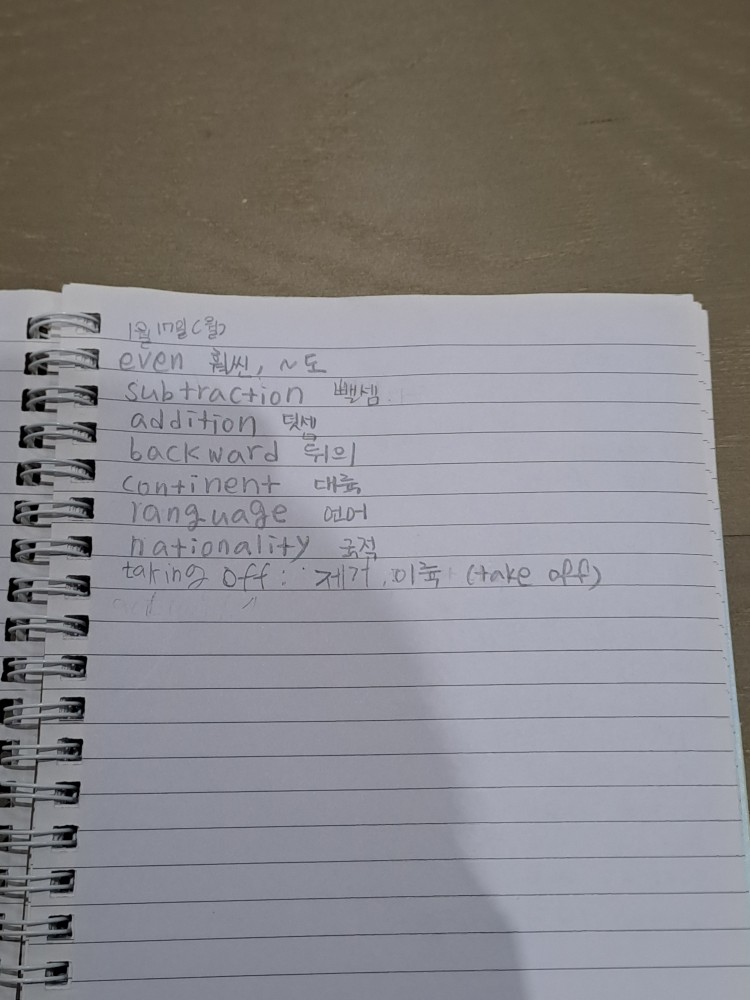 1월 17일(월)
even 훨씬, ~도
subtraction 뺄셈
addition 덧셈
backward 뒤의
continent 대륙
language 언어
nationality 국적
taking off : 제거, 이륙 (take off)